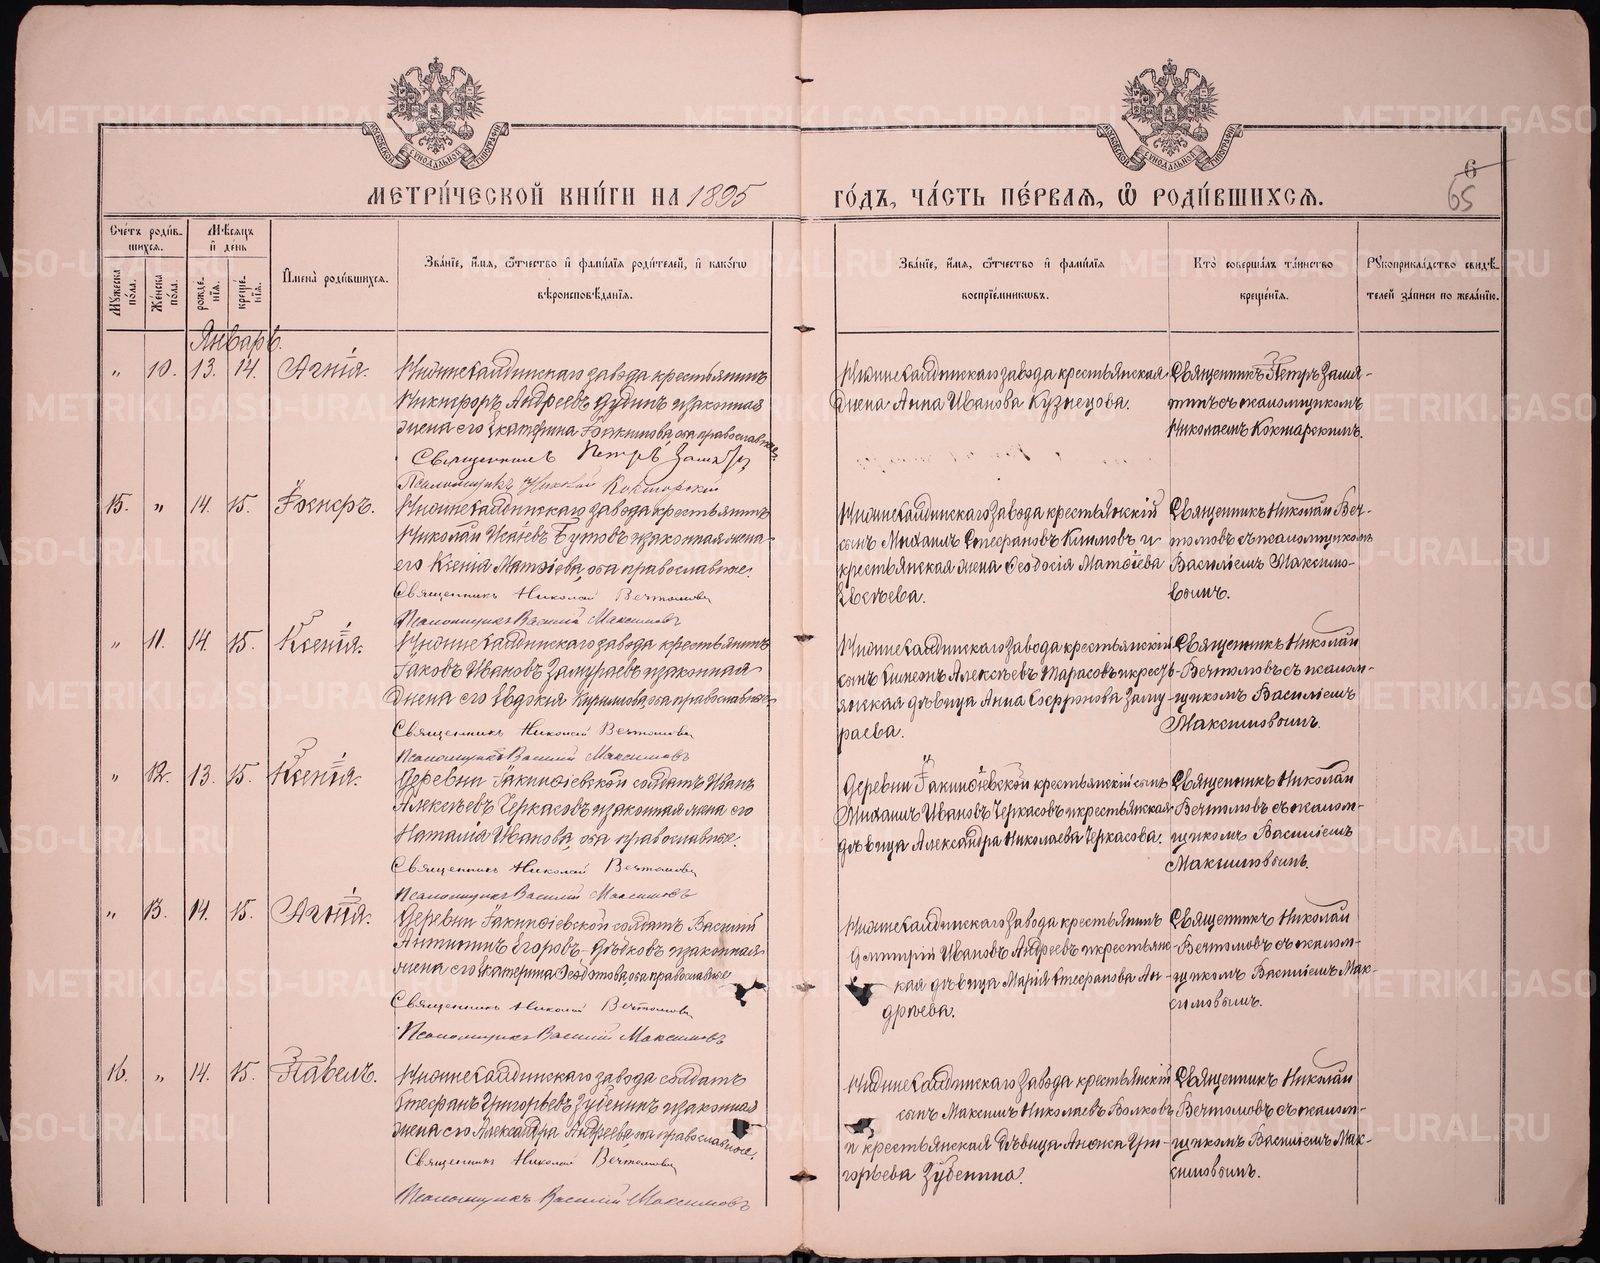 МОСКОВСКОЙ СѴНОДАЛЬНОЙ ТИПОГРАФІИ
МОСКОВСКОЙ СѴНОДАЛЬНОЙ ТИПОГРАФІИ
6
65
МЕТРИ́ЧЕСКОЙ КНИ́ГИ НА 1895
ГО́ДЪ, ЧА́СТЬ ПЕ́РВАЯ, Ѽ РОДИ́ВШИХСЯ.
Сче́тъ роди́в-
шихся.
Мѣ́сяцъ
и҆ де́нь
Му́жеска по́ла.
Же́нска по́ла.
рожде́нїя.
креще́нїя.
И҆мена̀ роди́вшихся.
Зва́нїе, и҆́мя, ѻ҆́тчество и҆ фами́лїя роди́телей, и҆ како́гѡ
вѣроисповѣ́данїя.
Зва́нїе, и҆́мя, ѻ҆́тчество и҆ фами́лїя
воспрїе́мниковъ.
Кто̀ соверша́лъ та́инство
креще́нїя.
Рꙋкоприкла́дство свидѣ́-
телей за́писи по жела́нїю.
Январь.
" 10. 13. 14. Агнія.
Нижнесалдинскаго завода крестьянинъ
Никифоръ Андреевъ Дудинъ и законная
жена его Екатерина Іоакимова, оба православные.
Священникъ Петръ
Псаломщикъ Николай
Нижнесалдинскаго завода крестьянская
жена Анна Иванова Кузнецова.
Священникъ Петръ
съ псаломщикомъ
Николаемъ
15. " 14. 15.
Нижнесалдинскаго завода крестьянинъ
Николай Исаіевъ Бутовъ и законная жена
его Ксенія Матѳіева, оба православные.
Священникъ Николай Вечтомовъ
Псаломщикъ Василій Максимовъ
Нижнесалдинскаго завода крестьянскій
сынъ Михаилъ Стефановъ Климовъ и
крестьянская жена Ѳеодосія Матѳіева
Священникъ Николай Веч-
томовъ съ псаломщикомъ
Василіемъ Максимо-
вымъ.
" 11. 14. 15. Ксенія.
Нижнесалдинскаго завода крестьянинъ
Іаковъ Ивановъ Замураевъ и законная
жена его Евдокія Кириллова, оба православные.
Священникъ Николай Вечтомовъ
Псаломщикъ Василій Максимовъ
Нижнесалдинскаго завода крестьянскій
сынъ Симеонъ Алексѣевъ Тарасовъ и кресть-
янская дѣвица Анна Заму-
раева.
Священникъ Николай
Вечтомовъ съ псалом-
щикомъ Василіемъ
Максимовымъ.
" 12. 13. 15. Ксенія.
Деревни Іакинѳіевской солдатъ Иванъ
Алексѣевъ Черкасовъ и законная жена его
Наталія Иванова, оба православные.
Священникъ Николай Вечтомовъ
Псаломщикъ Василій Максимовъ
Деревни Іакинѳіевской крестьянскій сынъ
Михаилъ Ивановъ Черкасовъ и крестьянская
дѣвица Александра Николаева Черкасова.
Священникъ Николай
Вечтомовъ съ псалом-
щикомъ Василіемъ
Максимовымъ.
" 13. 14. 15. Агнія.
Деревни Іакинѳіевской солдатъ Василій
Егоровъ и законная
жена его Екатерина Ѳеодотова, оба православные
Священникъ Николай Вечтомовъ
Псаломщикъ Василій Максимовъ
Нижнесалдинскаго завода крестьянинъ
Димитрій Ивановъ Андреевъ и крестьянс-
кая дѣвица Марія Стефанова Ан-
дреева.
Священникъ Николай
Вечтомовъ съ псалом-
щикомъ Василіемъ Мак-
симовымъ.
16. " 14. 15. Павелъ.
Нижнесалдинскаго завода солдатъ
Стефанъ Григорьевъ Зубенинъ и законная
жена его Александра Андреева, оба православные.
Священникъ Николай Вечтомовъ
Псаломщикъ Василій Максимовъ
Нижнесалдинскаго завода крестьянскій
сынъ Максимъ Николаевъ Волковъ
и крестьянская дѣвица Гри-
горьева Зубенина.
Священникъ Николай
Вечтомовъ съ псалом-
щикомъ Василіемъ Мак-
симовымъ.
METRIKI.GASO-URAL.RU